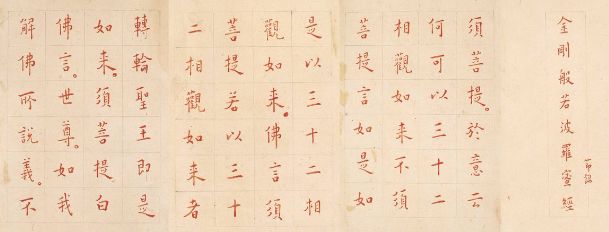 金剛般若波羅蜜經
節錄
須菩提。於意云
何可以三十二
相觀如来不須
菩提言如是如
是以三十二相
觀如来。佛言須
菩提若以三十
二相觀如来者
轉輪聖王即是
如来。須菩提白
佛言。世尊。如我
解佛所說義。不